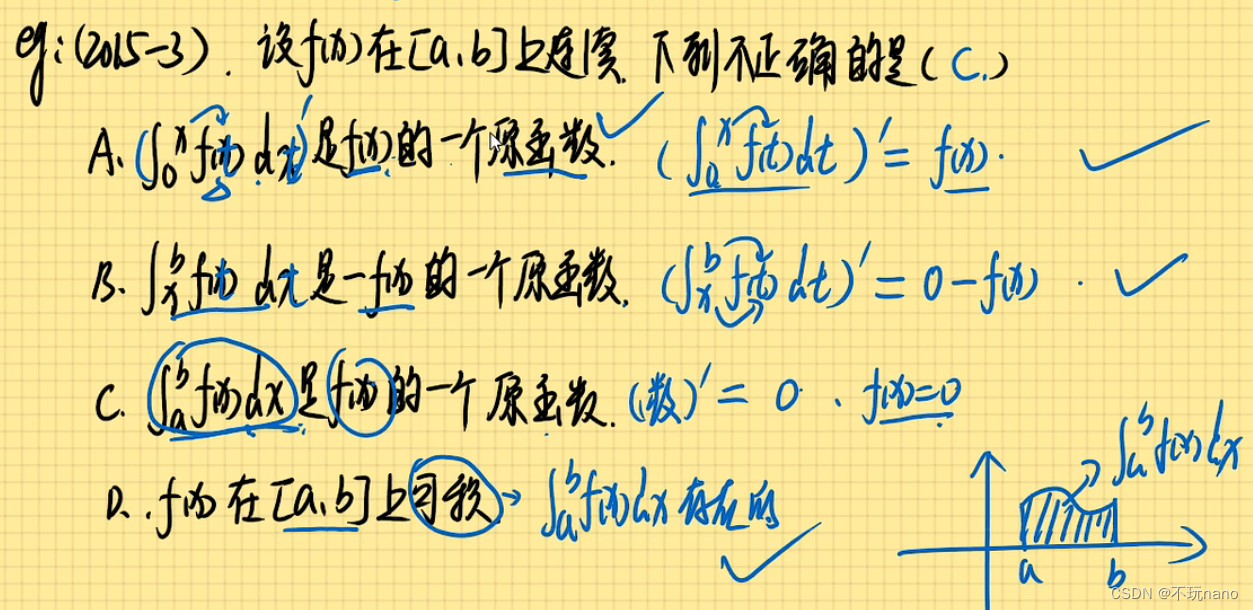 eg:(2015-3). 设f(x)在[a,b]上连续.下列不正确的是( C. )
A. (∫₀ˣ f(t) dt)' 是f(x)的一个原函数. (∫ₐˣ f(t)dt)' = f(x).
B. ∫ₓᵇ f(t) dt 是-f(x)的一个原函数. (∫ₓᵇ f(t)dt)' = 0-f(x).
C. ∫ₐᵇ f(x)dx 是f(x)的一个原函数. (数)' = 0. f(x)=0
∫ₐᵇ f(x)dx
D. f(x)在[a,b]上可积 → ∫ₐᵇ f(x)dx 存在的
a b
CSDN @不玩nano